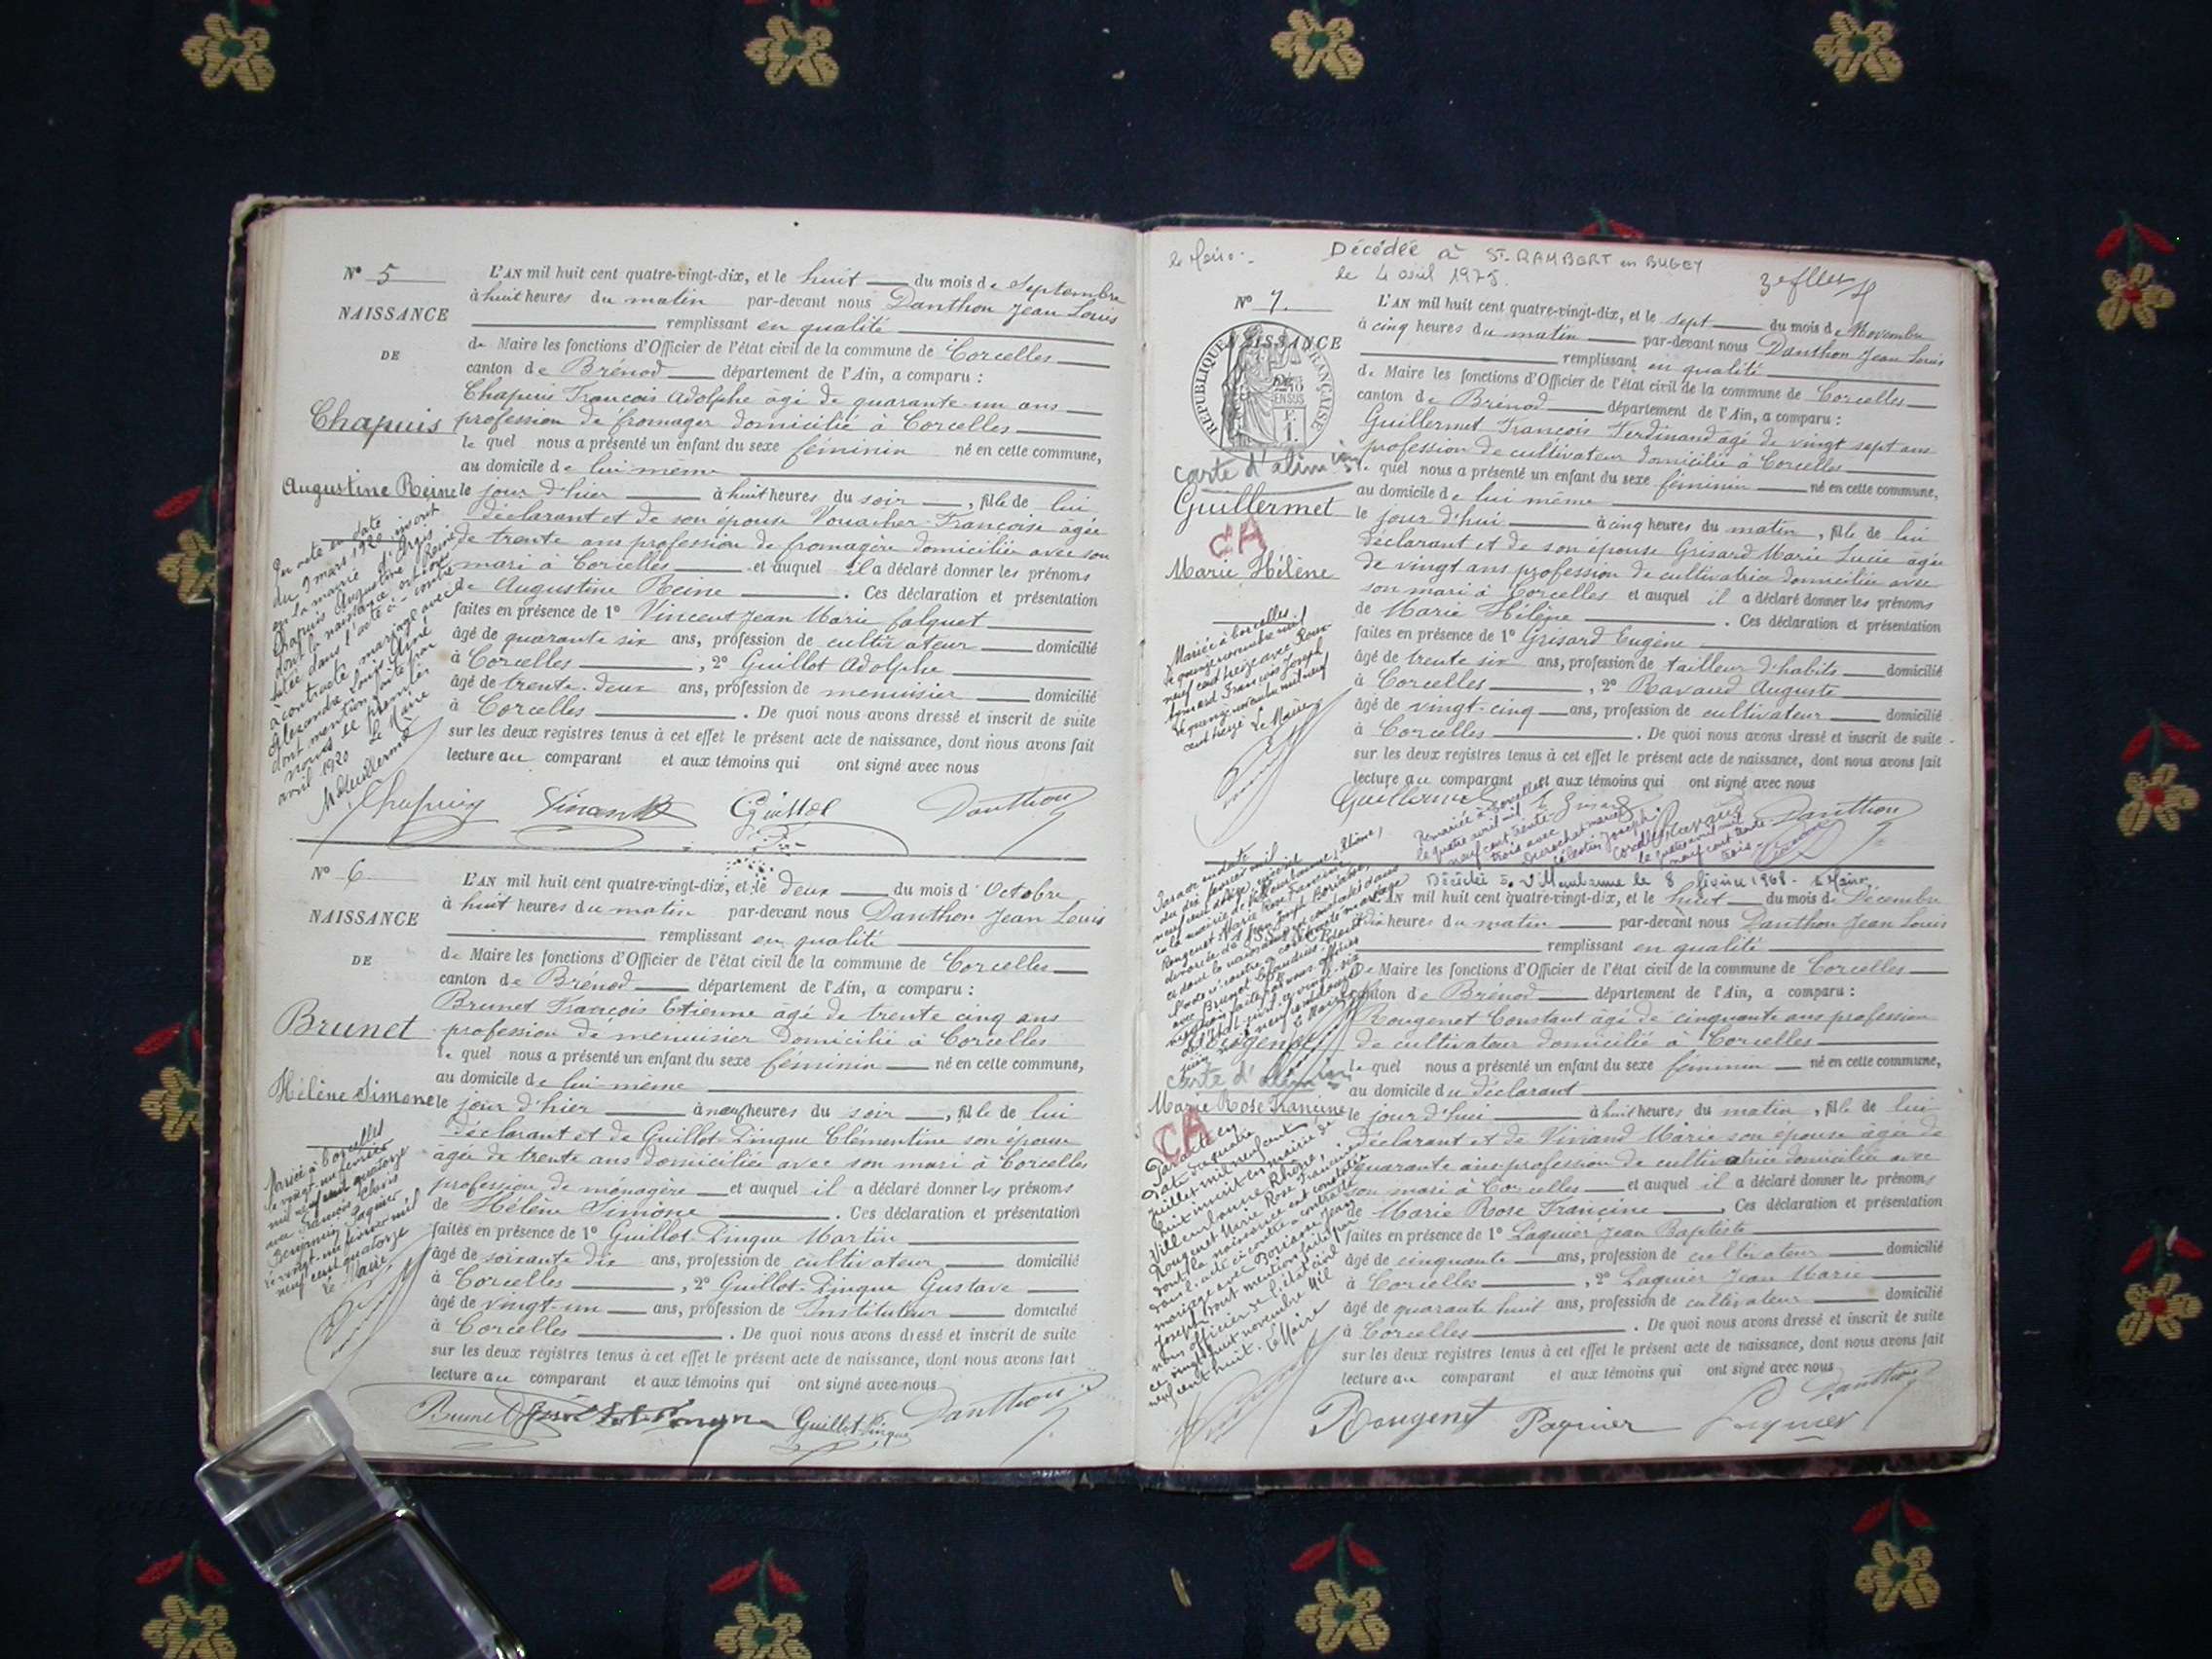 N° 5
NAISSANCE
DE
Chapuis
Augustine Reine
L'AN mil huit cent quatre-vingt-dix, et le huit du mois de Septembre
à huit heures du matin par-devant nous Danthon Jean Louis
remplissant en qualité
de Maire les fonctions d'Officier de l'état civil de la commune de Corcelles
canton de Brénod département de l'Ain, a comparu :
Chapuis François Adolphe âgé de quarante un ans
profession de fromager domicilié à Corcelles
le quel nous a présenté un enfant du sexe féminin né en cette commune,
au domicile de lui même
le jour d'hier à huit heures du soir , fille de lui
déclarant et de son épouse Françoise âgée
de trente ans profession de fromagère domiciliée avec son
mari à Corcelles et auquel il a déclaré donner les prénoms
de Augustine Reine . Ces déclaration et présentation
faites en présence de 1° Vincent Jean Marie falquet
âgé de quarante six ans, profession de cultivateur domicilié
à Corcelles , 2° Guillot Adolphe
âgé de trente-deux ans, profession de menuisier domicilié
à Corcelles . De quoi nous avons dressé et inscrit de suite
sur les deux registres tenus à cet effet le présent acte de naissance, dont nous avons fait
lecture au comparant et aux témoins qui ont signé avec nous
Par acte en date
du 9 mars 1920 inscrit
en la mairie d'Argis
Chapuis Augustine Reine
dont la naissance est
dans l'acte ci-contre
a contracté mariage avec
Alexandre Louis Aimé
dont mention faite par
nous le premier
avril 1920 Le Maire
Chapuis Vincent Guillot Danthon
N° 6
NAISSANCE
DE
Brunet
Hélène Simone
L'AN mil huit cent quatre-vingt-dix, et le deux du mois d'Octobre
à huit heures du matin par-devant nous Danthon Jean Louis
remplissant en qualité
de Maire les fonctions d'Officier de l'état civil de la commune de Corcelles
canton de Brénod département de l'Ain, a comparu :
Brunet François Etienne âgé de trente cinq ans
profession de menuisier domicilié à Corcelles
le quel nous a présenté un enfant du sexe féminin né en cette commune,
au domicile de lui-même
le jour d'hier à neuf heures du soir , fille de lui
déclarant et de Guillot-Pingue Clémentine son épouse
âgée de trente ans domiciliée avec son mari à Corcelles
profession de ménagère et auquel il a déclaré donner les prénoms
de Hélène Simone . Ces déclaration et présentation
faites en présence de 1° Guillot-Pingue Martin
âgé de soixante dix ans, profession de cultivateur domicilié
à Corcelles , 2° Guillot-Pingue Gustave
âgé de vingt-un ans, profession de Instituteur domicilié
à Corcelles . De quoi nous avons dressé et inscrit de suite
sur les deux registres tenus à cet effet le présent acte de naissance, dont nous avons fait
lecture au comparant et aux témoins qui ont signé avec nous
Mariée à Corcelles
le vingt un février
mil neuf cent quatorze
avec François
Benjamin Paquier
Le vingt-un février mil
neuf cent quatorze
Le Maire
Brunet Guillot Pingue Danthon
le Maire
Décédée à ST-RAMBERT en BUGEY
le 4 avril 1975.
N° 7.
NAISSANCE
RÉPUBLIQUE FRANÇAISE
carte d'alim
Guillermet
CA
Marie Hélène
L'AN mil huit cent quatre-vingt-dix, et le sept du mois de Novembre
à cinq heures du matin par-devant nous Danthon Jean Louis
remplissant en qualité
de Maire les fonctions d'Officier de l'état civil de la commune de Corcelles
canton de Brénod département de l'Ain, a comparu :
Guillermet François Ferdinand âgé de vingt sept ans
profession de cultivateur domicilié à Corcelles
le quel nous a présenté un enfant du sexe féminin né en cette commune,
au domicile de lui même
le jour d'hui à cinq heures du matin , fille de lui
déclarant et de son épouse Grisard Marie Lucie âgée
de vingt ans profession de cultivatrice domiciliée avec
son mari à Corcelles et auquel il a déclaré donner les prénoms
de Marie Hélène . Ces déclaration et présentation
faites en présence de 1° Grisard Eugène
âgé de trente six ans, profession de tailleur d'habits domicilié
à Corcelles , 2° Ravaud Auguste
âgé de vingt-cinq ans, profession de cultivateur domicilié
à Corcelles . De quoi nous avons dressé et inscrit de suite
sur les deux registres tenus à cet effet le présent acte de naissance, dont nous avons fait
lecture au comparant et aux témoins qui ont signé avec nous
Mariée à Corcelles
le quinze novembre mil
neuf cent treize avec
François Joseph
le quinze novembre mil neuf
cent treize Le Maire
Guillermet Grisard Ravaud Danthon
Remariée à Corcelles
le quatre avril mil
neuf cent trente-
trois avec
Célestin Joseph
Corcelles
le quatre avril mil
neuf cent trente
trois
Décédée à Villeurbanne le 8 février 1968. Le Maire
NAISSANCE
Rougenet
carte d'alim
Marie Rose Francine
CA
L'AN mil huit cent quatre-vingt-dix, et le huit du mois de Décembre
à dix heures du matin par-devant nous Danthon Jean Louis
remplissant en qualité
de Maire les fonctions d'Officier de l'état civil de la commune de Corcelles
canton de Brénod département de l'Ain, a comparu :
Rougenet Constant âgé de cinquante ans profession
de cultivateur domicilié à Corcelles
le quel nous a présenté un enfant du sexe féminin né en cette commune,
au domicile du déclarant
le jour d'hui à huit heures du matin , fille de lui
déclarant et de Viviand Marie son épouse âgée de
quarante ans profession de cultivatrice domiciliée avec
son mari à Corcelles et auquel il a déclaré donner les prénoms
de Marie Rose Francine . Ces déclaration et présentation
faites en présence de 1° Paquier Jean Baptiste
âgé de cinquante ans, profession de cultivateur domicilié
à Corcelles , 2° Paquier Jean Marie
âgé de quarante huit ans, profession de cultivateur domicilié
à Corcelles . De quoi nous avons dressé et inscrit de suite
sur les deux registres tenus à cet effet le présent acte de naissance, dont nous avons fait
lecture au comparant et aux témoins qui ont signé avec nous
Par acte en
date du quatre
juillet mil neuf cent
huit inscrit en mairie de
Villeurbanne, Rhône,
Rougenet Marie Rose Francine
dont la naissance est constatée
dans l'acte ci-contre a contracté
mariage avec Jean
Joseph, dont mention faite par
nous officier de l'état civil
ce vingt-huit novembre mil
neuf cent huit. Le Maire
Rougenet Paquier Paquier Danthon